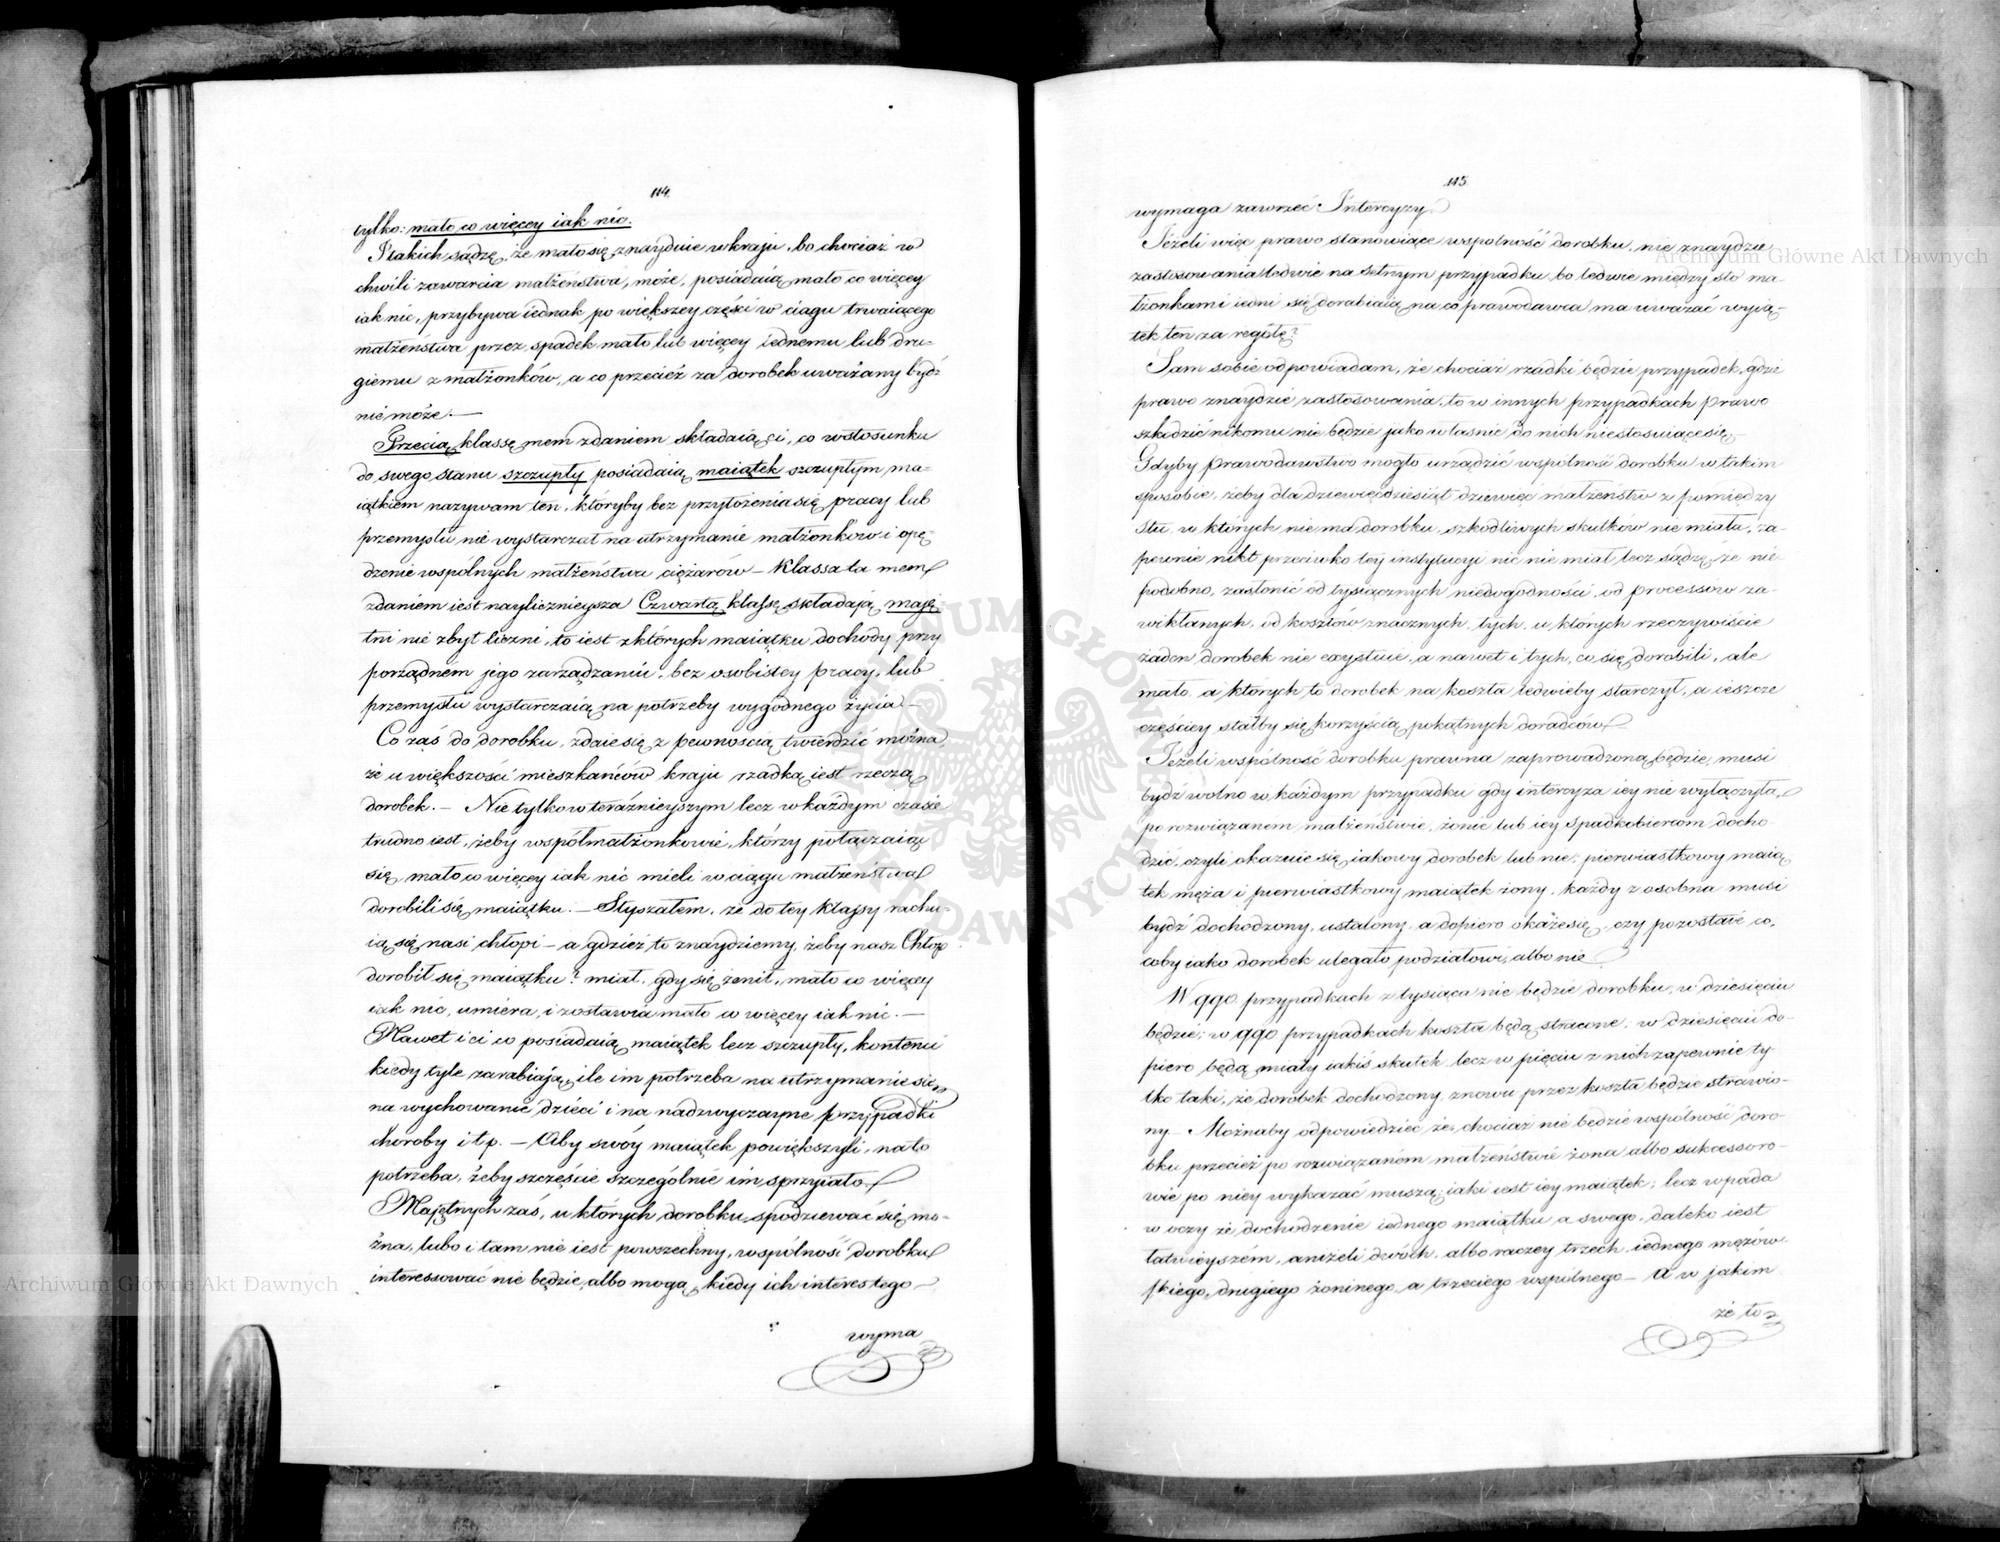 114
tylko: mało co więcey iak nic.
I takich sądzę, że mało się znayduie w kraju, bo chociaż w
chwili zawarcia małżeństwa, może, posiadaią mało co więcey
iak nic, przybywa iednak po większey części w ciągu trwaiącego
małżeństwa przez spadek mało lub więcey iednemu lub dru-
giemu z małżonków, a co przecież za dorobek uważany bydź
nie może. —
Trzecią klassę mem zdaniem składaią ci, co w stosunku
do swego stanu szczupły posiadaią maiątek szczupłym ma-
iątkiem nazywam ten, któryby bez przyłożenia się pracy lub
przemysłu nie wystarczał na utrzymanie małżonków i opę-
dzenie wspólnych małżeństwa ciężarów — Klassa ta mem
zdaniem iest nayliczniejsza Czwartą klassę składają mają-
tni nie zbyt liczni, to iest z których maiątku dochody przy
porządném jego zarządzaniu, bez osobistey pracy, lub
przemysłu wystarczaią na potrzeby wygodnego życia —
Co zaś do dorobku, zdaie się z pewnością twierdzić można,
że u większości mieszkańców kraju rzadką iest rzeczą
dorobek. — Nie tylko w teraźnieyszym lecz w każdym czasie
trudno iest, żeby współmałżonkowie, którzy połączaią
się mało co więcey iak nic mieli w ciągu małżeństwa
dorobili się maiątku. — Słyszałem, że do tey klassy rachu-
ią się nasi chłopi — a gdzież to znaydziemy, żeby nasz Chłop
dorobił się maiątku? miał, gdy się żenił, mało co więcey
iak nic, umiera, i zostawia mało co więcey iak nic. —
Nawet i ci co posiadaią maiątek lecz szczupły, kontenci
kiedy tyle zarabiają, ile im potrzeba na utrzymanie się
na wychowanie dzieci i na nadzwyczayne przypadki
choroby i t.p. — Aby swóy maiątek powiększyli, na to
potrzeba, żeby szczęście szczególnie im sprzyiało
Majętnych zaś, u których dorobku spodziewać się mo-
żna, lubo i tam nie iest powszechny, wspólność dorobku
interessować nie będzie, albo mogą, kiedy ich interes tego —
wyma
115
wymaga zawrzeć Intercyzy.
Jeżeli więc prawo stanowiące wspolność dorobku, nie znaydzie
zastosowania ledwie na setnym przypadku bo ledwie między sto ma-
łżonkami iedni się dorabiaią, na co prawodawca ma uważać wyią-
tek ten za regułę?
Sam sobie odpowiadam, że chociaż rzadki będzie przypadek, gdzie
prawo znaydzie zastosowania, to w innych przypadkach prawo
szkodzić nikomu nie będzie jako właśnie do nich niestosuiące się —
Gdyby prawodawstwo mogło urządzić wspólność dorobku w takim
sposobie, żeby dla dziewięćdziesiąt dziewięć małżeństw z pomiędzy
stu, w których nie ma dorobku, szkodliwych skutków nie miała, za-
pewnie nikt przeciwko tey instytucyi nic nie miał lecz sądzę, że nie
podobno, zasłonić od tysiącznych niedogodności, od processów za-
wikłanych, od kosztów znacznych, tych, u których rzeczywiście
żaden dorobek nie exystuie, a nawet i tych, co się dorobili, ale
mało, a których to dorobek na koszta ledwieby starczył, a ieszcze
częściey stałby się korzyścią pokątnych doradców
Jeżeli wspólność dorobku prawna zaprowadzona będzie, musi
bydź wolno w każdym przypadku gdy intercyza iey nie wyłączyła,
po rozwiązanem małżeństwie, żonie lub iey spadkobiercom docho
dzić, czyli okazuie się iakowy dorobek lub nie; pierwiastkowy maią
tek męża i pierwiastkowy maiątek żony, każdy z osobna musi
bydź dochodzony, ustalony, a dopiero okaże się, czy pozostaie co,
coby iako dorobek ulegało podziałowi, albo nie
W 990 przypadkach z tysiąca nie będzie dorobku, w dziesięciu
będzie; w 990 przypadkach koszta będą stracone, w dziesięciu do-
piero będą miały iakiś skutek lecz w pięciu z nich zapewnie ty-
lko taki, że dorobek dochodzony, znowu przez koszta będzie strawio-
ny — Możnaby odpowiedzieć że, chociaż nie będzie wspólność doro-
bku przecież po rozwiązaném małżeństwie żona albo sukcessoro-
wie po niey wykazać muszą, iaki iest iey maiątek; lecz wpada
w oczy że dochodzenie iednego maiątku a swego, daleko iest
łatwieyszém, aniżeli dwóch, albo raczey trzech, iednego mężow-
skiego, drugiego żoninego, a trzeciego wspólnego — a w jakim
że to
Archiwum Główne Akt Dawnych
Archiwum Główne Akt Dawnych
ARCHIWUM GŁÓWNE AKT DAWNYCH